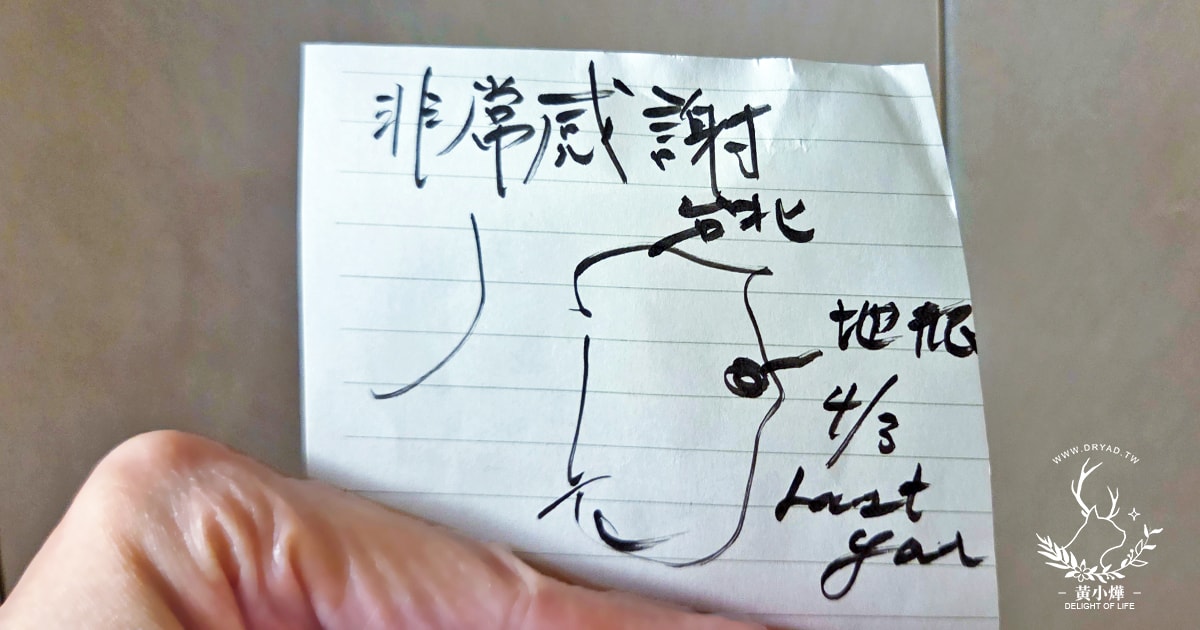 非常感謝
台北
地
4/3
Last
year
WWW.DRYAD.TW
- 黃小燁 -
DELIGHT OF LIFE